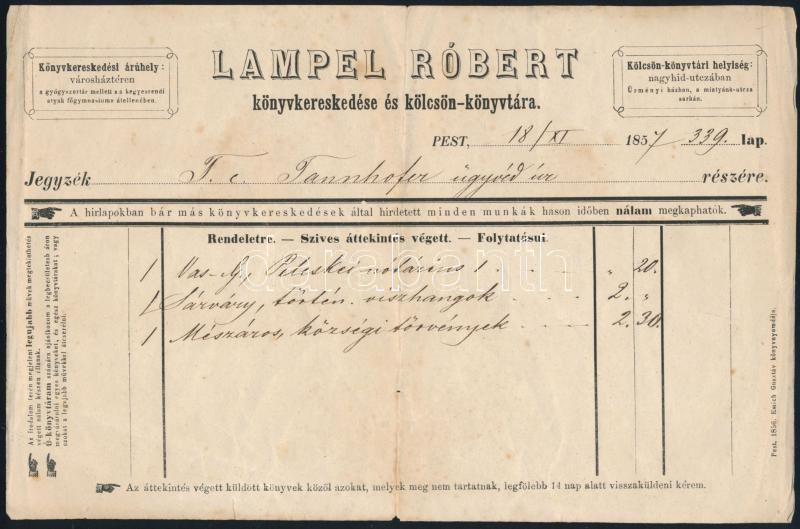 Könyvkereskedési árúhely:
városháztéren
a gyógyszertár mellett a s kegyesrendi
atyák főgymnasiuma átellenében.
LAMPEL RÓBERT
könyvkereskedése és kölcsön-könyvtára.
Kölcsön-könyvtári helyiség:
nagyhid-utczában
Ürményi házban, a mintyánk-utcza
sarkán.
PEST, 18/XI 1857 339. lap.
Jegyzék T. c. Tannhofer ügyvéd úr részére.
A hirlapokban bár más könyvkereskedések által hirdetett minden munkák hason időben nálam megkaphatók.
Rendeletre. — Szives áttekintés végett. — Folytatásul.
1 Vas-G., Peleskei notárius 1. . . . " 20.
1 Sárváry, történ. viszhangok . . . 2. "
1 Mészáros, községi törvények . . . 2. 30.
Az irodalom terén megjelent legujabb művek megtekinthetés
végett nálam készen állanak.
Ó-könyvtáram számára ajánlkozom a legbecsületesb áron
megvásárolni egyes könyveket, és egész könyvtárakat; vagy
azokat a legujabb művekkel kicserélni.
Pest, 1856. Emich Gusztáv könyvnyomdája.
Az áttekintés végett küldött könyvek közől azokat, melyek meg nem tartatnak, legfölebb 14 nap alatt visszaküldeni kérem.
darabanth